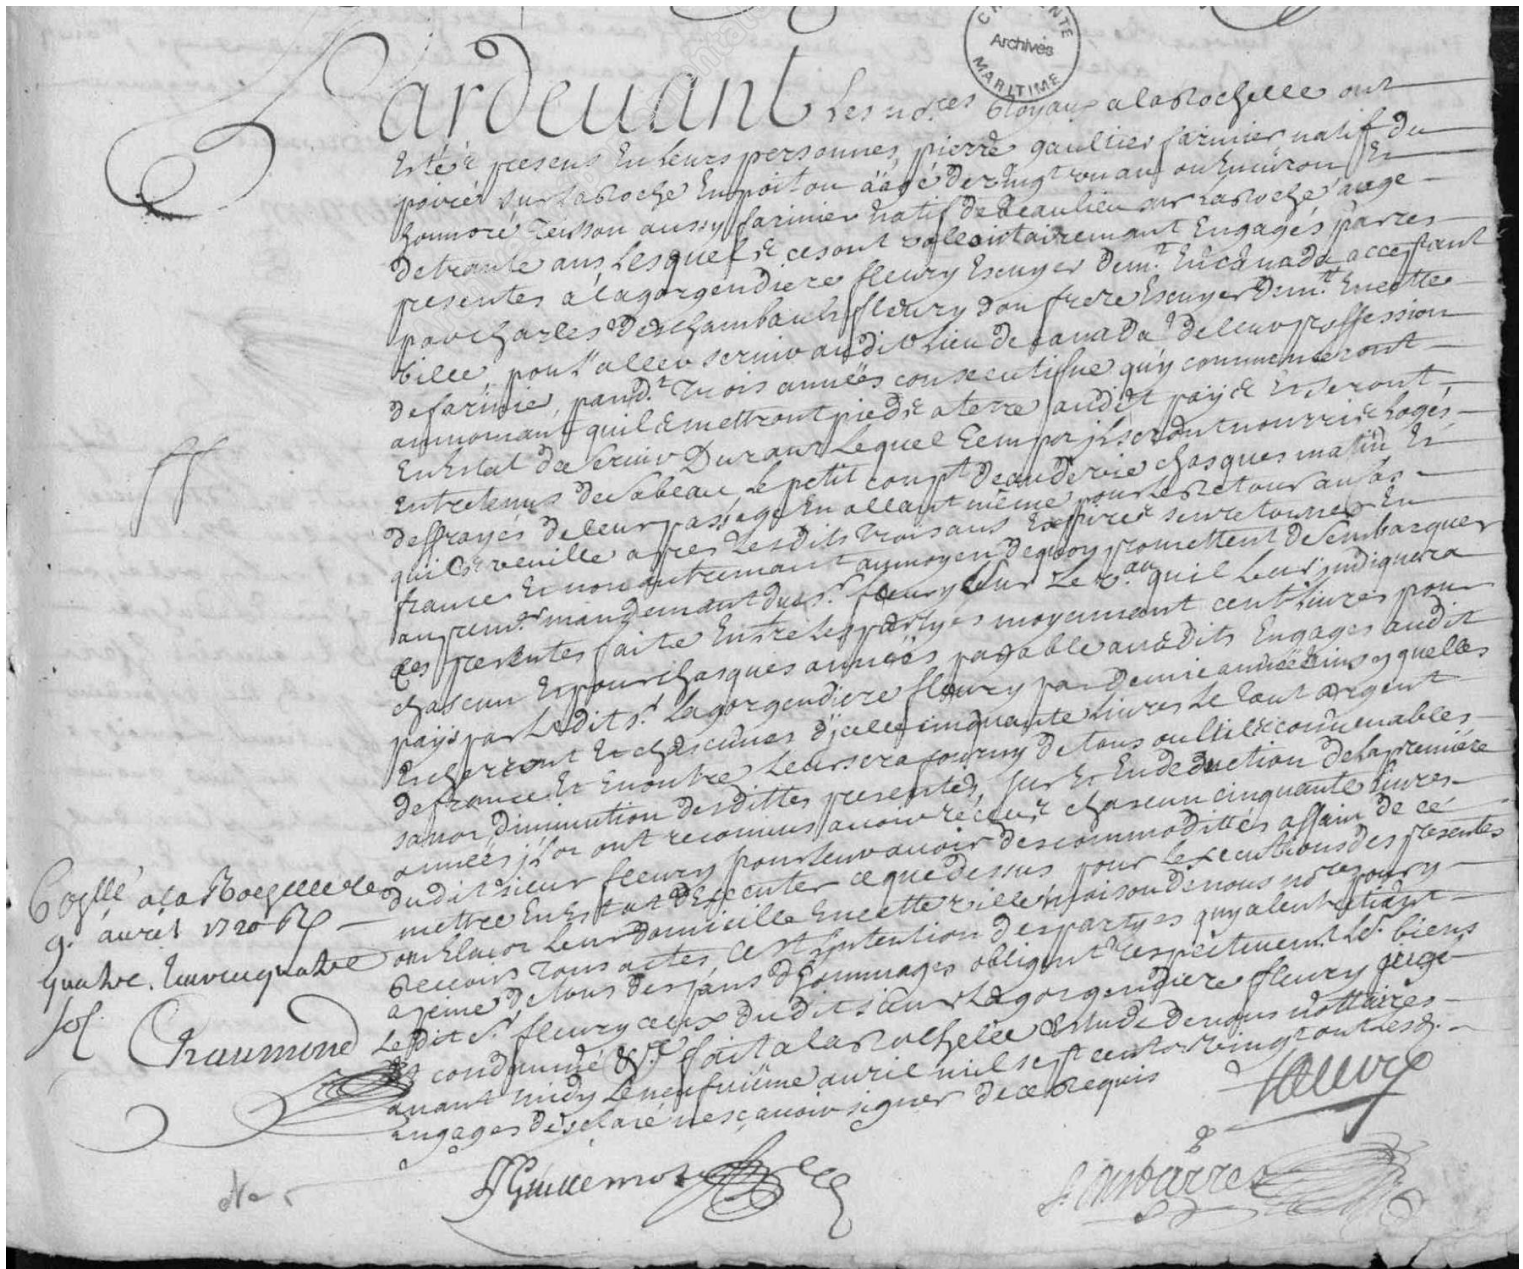 CHARENTE
Archives
MARITIME
Pardevant Les no.res Royaux a la Rochelle ont
Esté presens En leurs personnes, pierre gaultier farinier natif du
poiré sur la Roche En poitou aagé de vingt un an ou Environ Et
honnoré Teisson aussy farinier natif de beaulieu sur la Roche aagé
de trante ans Lesquels ce sont volontairemant Engagés par ces
presentes a lagorgendiere fleury Escuyer dem.t En Canada acceptant
par Charles deschambault fleury son frere Escuyer dem.t En cette
ville, pour l'aller servir audit lieu de canada de leur proffession
de farinie, pand.t trois années consecutifue quy commenceront
au momant quils mettront pieds a terre audit pays Et seront
En Estat de servir Durant Lequel temps jls seront nourris Logés
Entretenus de sabeau, Le petit coup d'eaudevie chasques matin, Et
deffrayés de leur passage En allant même pour le Retour au cas
quils veuille apres Lesdits trois ans Expirés sen retourner En
france Et non autremant au moyen dequoy promettent de sembarquer
au prem.er mandemant dud s.r fleury sur Le v.au quil Leur jndiquera
Ces presentes faite Entre les partyes moyennant cent Livres pour
chascun Et pour chasques années payable auxdits Engagés audit
pays par Ledit s.r Lagorgendiere fleury par demie année ainsy quelles
Escherront Et chascunes d'jcelle cinquante livres Le tout argent
de france Et En outre Leur sera fourny de tous outils convenables
sans diminution desdittes presentes, sur Et En deduction de la premiere
années jls ont reconnus avoir receus chascun cinquante Livres
dudit sieur fleury pour leur avoir des commodittés affain de ce
mettre En Estat d'Executer ce que dessus pour Lexecutions des presentes
on Eslu Leur domicille En cette ville maison de nous no.res pour y
Recevoir Tous actes, C'est l'intention des partyes quy a lentretient
a peine de tous despans dommages obligent respectivement Les biens
Ledit s.r fleury ceux dudit sieur Lagorgendiere fleury jugé
Et condamné &.c fait a la Rochelle Estude de nous nottaires
avant midy Le neufviême avril mil sept cents vingt ont Lesd.
Engagés desclaré ne sçavoir signer de ce Requis
fleury
Guillemot
Desbarres
Coʒllé a la Rochelle le
9. avril 1720 Rç
quatre livres quatre
sol.
Chaumond